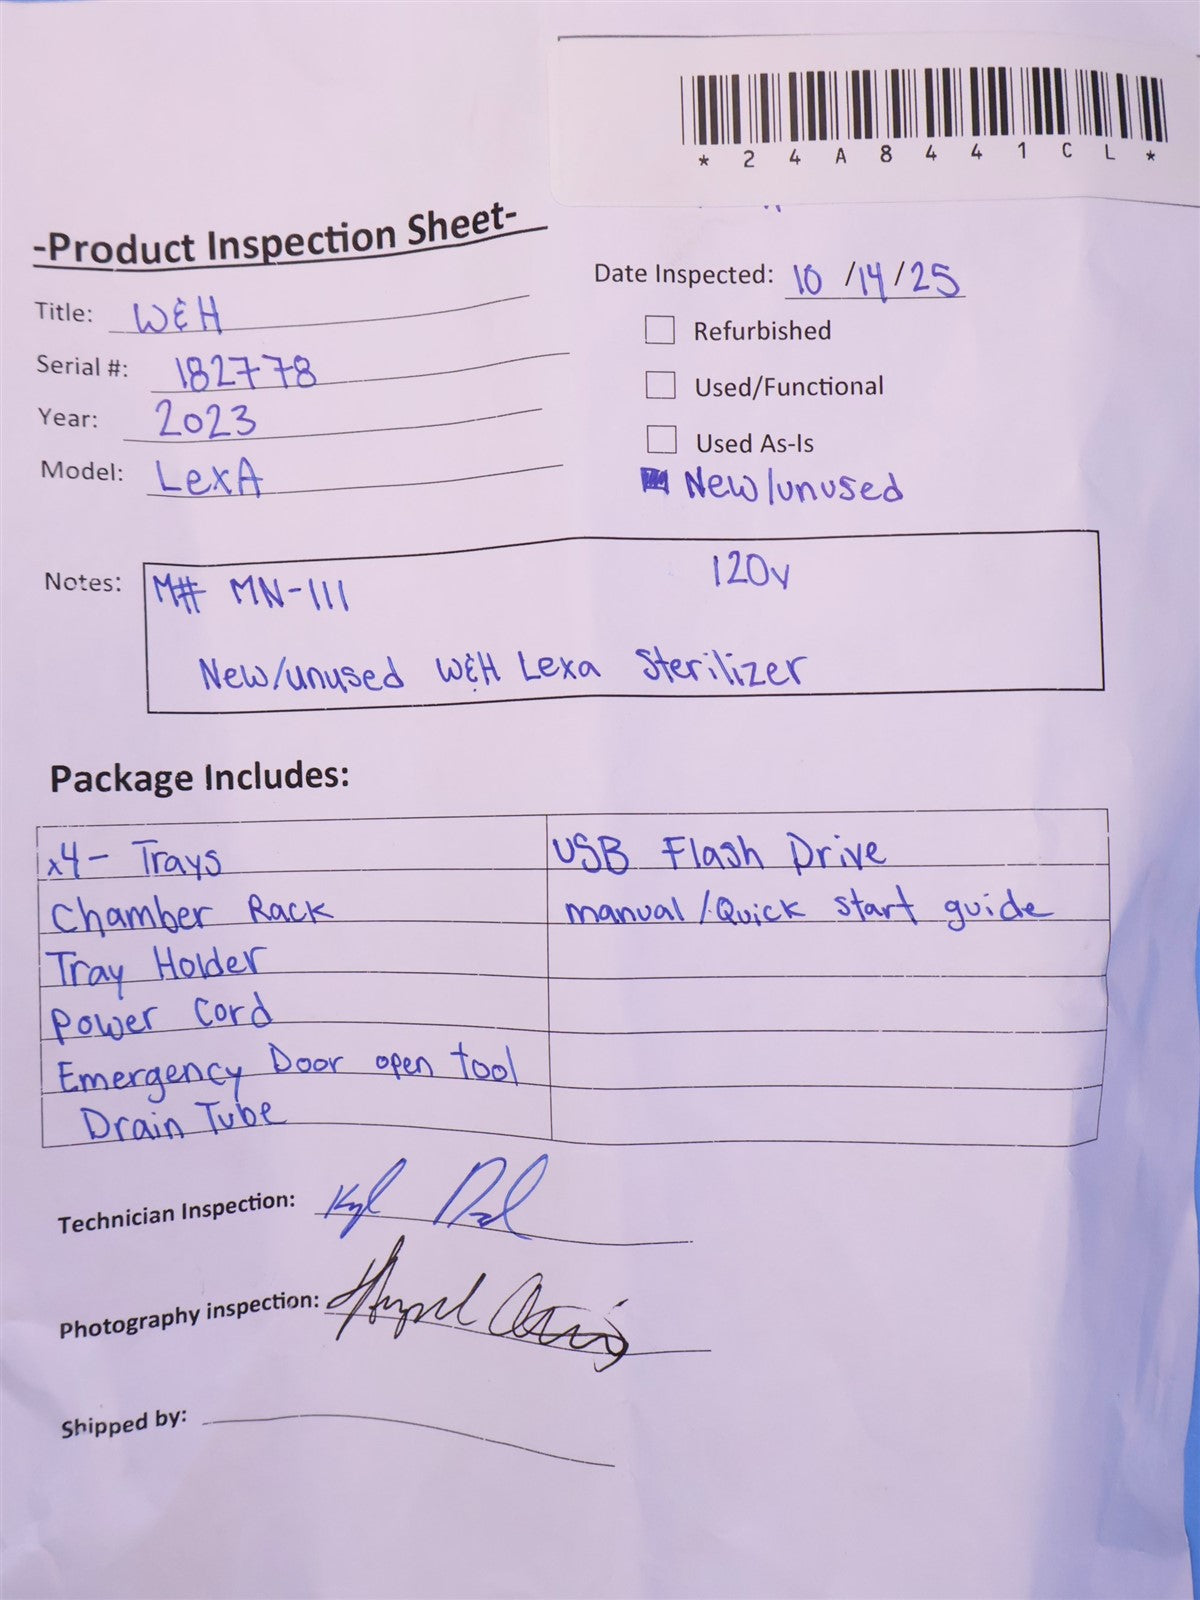 *24A8441CL*
-Product Inspection Sheet-
Date Inspected: 10/14/25
Title: W&H
Refurbished
Serial #: 182778
Used/Functional
Year: 2023
Used As-Is
Model: LexA
New/unused
Notes: M# MN-111 120v
New/unused W&H Lexa Sterilizer
Package Includes:
x4- Trays USB Flash Drive
Chamber Rack manual/Quick start guide
Tray Holder
Power Cord
Emergency Door open tool
Drain Tube
Technician Inspection:
Photography inspection:
Shipped by: